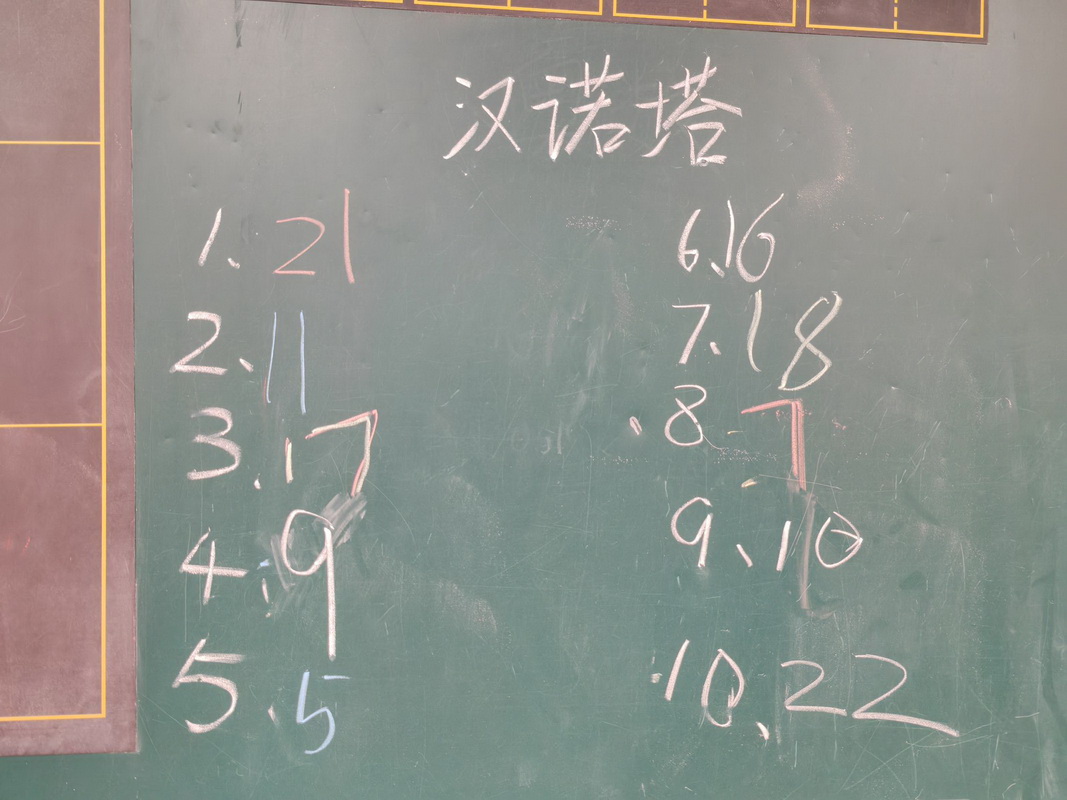 汉诺塔
1. 21
2. 11
3. 17
4. 9
5. 5
6. 16
7. 18
8. 7
9. 10
10. 22